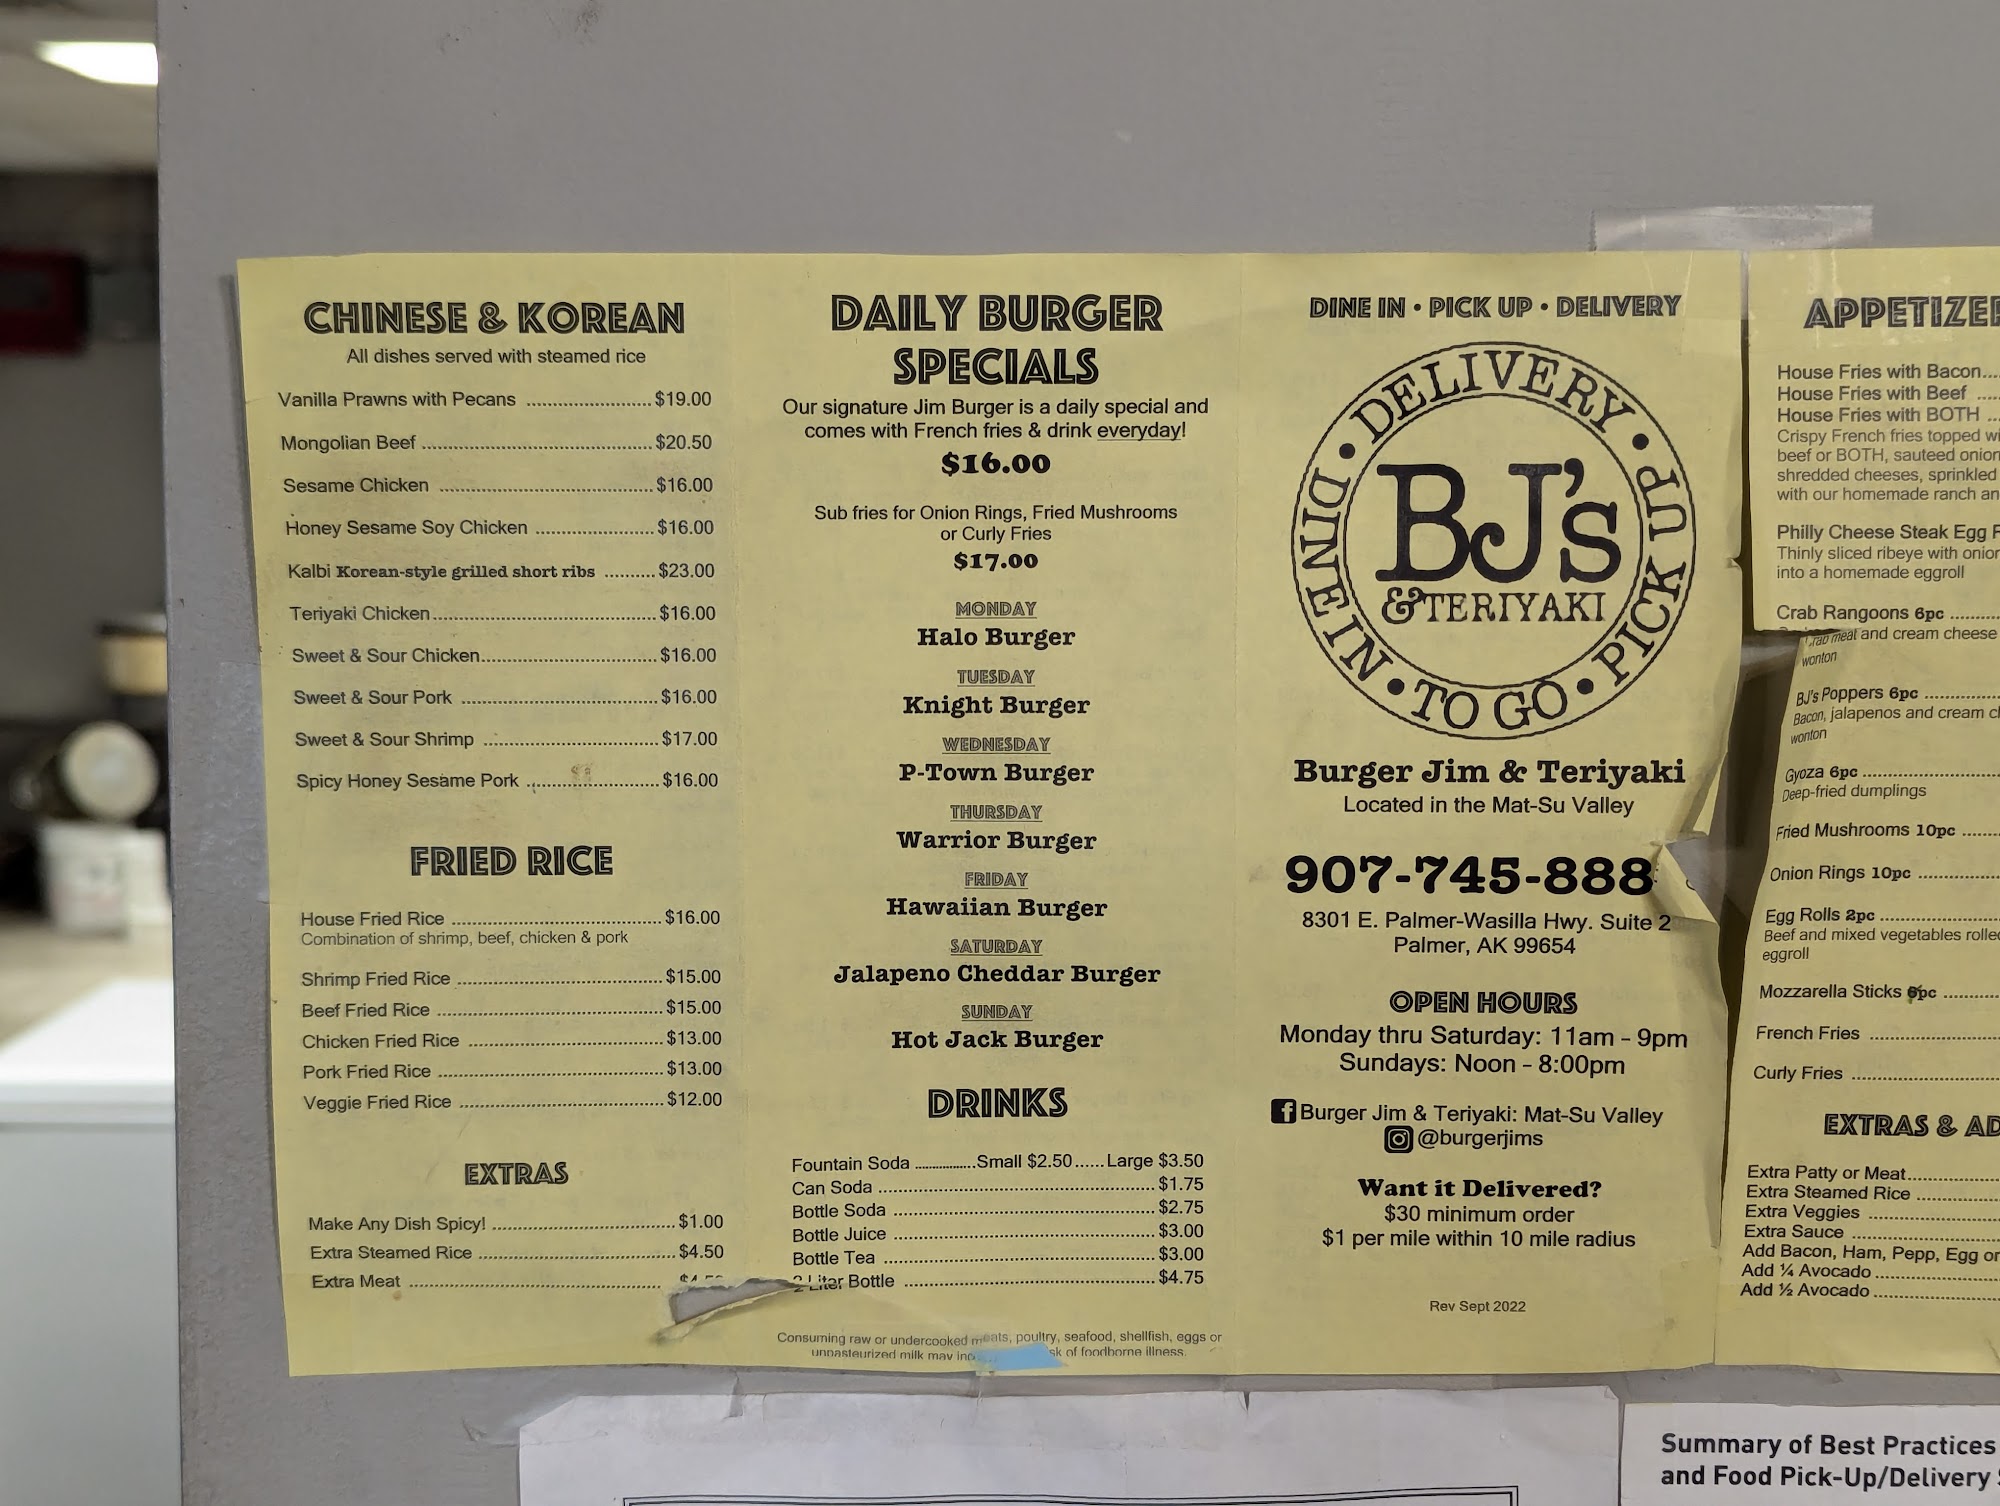 CHINESE & KOREAN
All dishes served with steamed rice
Vanilla Prawns with Pecans ........................ $19.00
Mongolian Beef ........................ $20.50
Sesame Chicken ........................ $16.00
Honey Sesame Soy Chicken ........................ $16.00
Kalbi Korean-style grilled short ribs .......... $23.00
Teriyaki Chicken ........................ $16.00
Sweet & Sour Chicken ........................ $16.00
Sweet & Sour Pork ........................ $16.00
Sweet & Sour Shrimp ........................ $17.00
Spicy Honey Sesame Pork ........................ $16.00
FRIED RICE
House Fried Rice ........................ $16.00
Combination of shrimp, beef, chicken & pork
Shrimp Fried Rice ........................ $15.00
Beef Fried Rice ........................ $15.00
Chicken Fried Rice ........................ $13.00
Pork Fried Rice ........................ $13.00
Veggie Fried Rice ........................ $12.00
EXTRAS
Make Any Dish Spicy! ........................ $1.00
Extra Steamed Rice ........................ $4.50
Extra Meat ........................
DAILY BURGER
SPECIALS
Our signature Jim Burger is a daily special and
comes with French fries & drink everyday!
$16.00
Sub fries for Onion Rings, Fried Mushrooms
or Curly Fries
$17.00
MONDAY
Halo Burger
TUESDAY
Knight Burger
WEDNESDAY
P-Town Burger
THURSDAY
Warrior Burger
FRIDAY
Hawaiian Burger
SATURDAY
Jalapeno Cheddar Burger
SUNDAY
Hot Jack Burger
DRINKS
Fountain Soda ................ Small $2.50 ...... Large $3.50
Can Soda ........................ $1.75
Bottle Soda ........................ $2.75
Bottle Juice ........................ $3.00
Bottle Tea ........................ $3.00
2 Liter Bottle ........................ $4.75
Consuming raw or undercooked meats, poultry, seafood, shellfish, eggs or
unpasteurized milk may of foodborne illness.
DINE IN • PICK UP • DELIVERY
DELIVERY • PICK UP • TO GO • DINE IN •
BJ's
& TERIYAKI
Burger Jim & Teriyaki
Located in the Mat-Su Valley
907-745-888
8301 E. Palmer-Wasilla Hwy. Suite 2
Palmer, AK 99654
OPEN HOURS
Monday thru Saturday: 11am - 9pm
Sundays: Noon - 8:00pm
Burger Jim & Teriyaki: Mat-Su Valley
@burgerjims
Want it Delivered?
$30 minimum order
$1 per mile within 10 mile radius
Rev Sept 2022
APPETIZE
House Fries with Bacon....
House Fries with Beef .....
House Fries with BOTH ...
Crispy French fries topped
beef or BOTH, sauteed
shredded cheeses, sprinkled
with our homemade ranch
Philly Cheese Steak Egg
Thinly sliced ribeye with
into a homemade eggroll
Crab Rangoons 6pc ..........
meat and cream cheese
wonton
BJ's Poppers 6pc ..............
Bacon, jalapenos and cream
wonton
Gyoza 6pc ........................
Deep-fried dumplings
Fried Mushrooms 10pc .......
Onion Rings 10pc ...............
Egg Rolls 2pc .....................
Beef and mixed vegetables rolled
eggroll
Mozzarella Sticks 6pc ..........
French Fries ........................
Curly Fries ........................
EXTRAS & AD
Extra Patty or Meat..............
Extra Steamed Rice ..............
Extra Veggies ......................
Extra Sauce ........................
Add Bacon, Ham, Pepp, Egg or
Add ¼ Avocado ..................
Add ½ Avocado ..................
Summary of Best Practices
and Food Pick-Up/Delivery